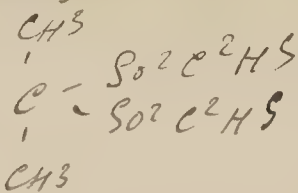 CH3
SO2 C2H5
C
SO2 C2H5
CH3